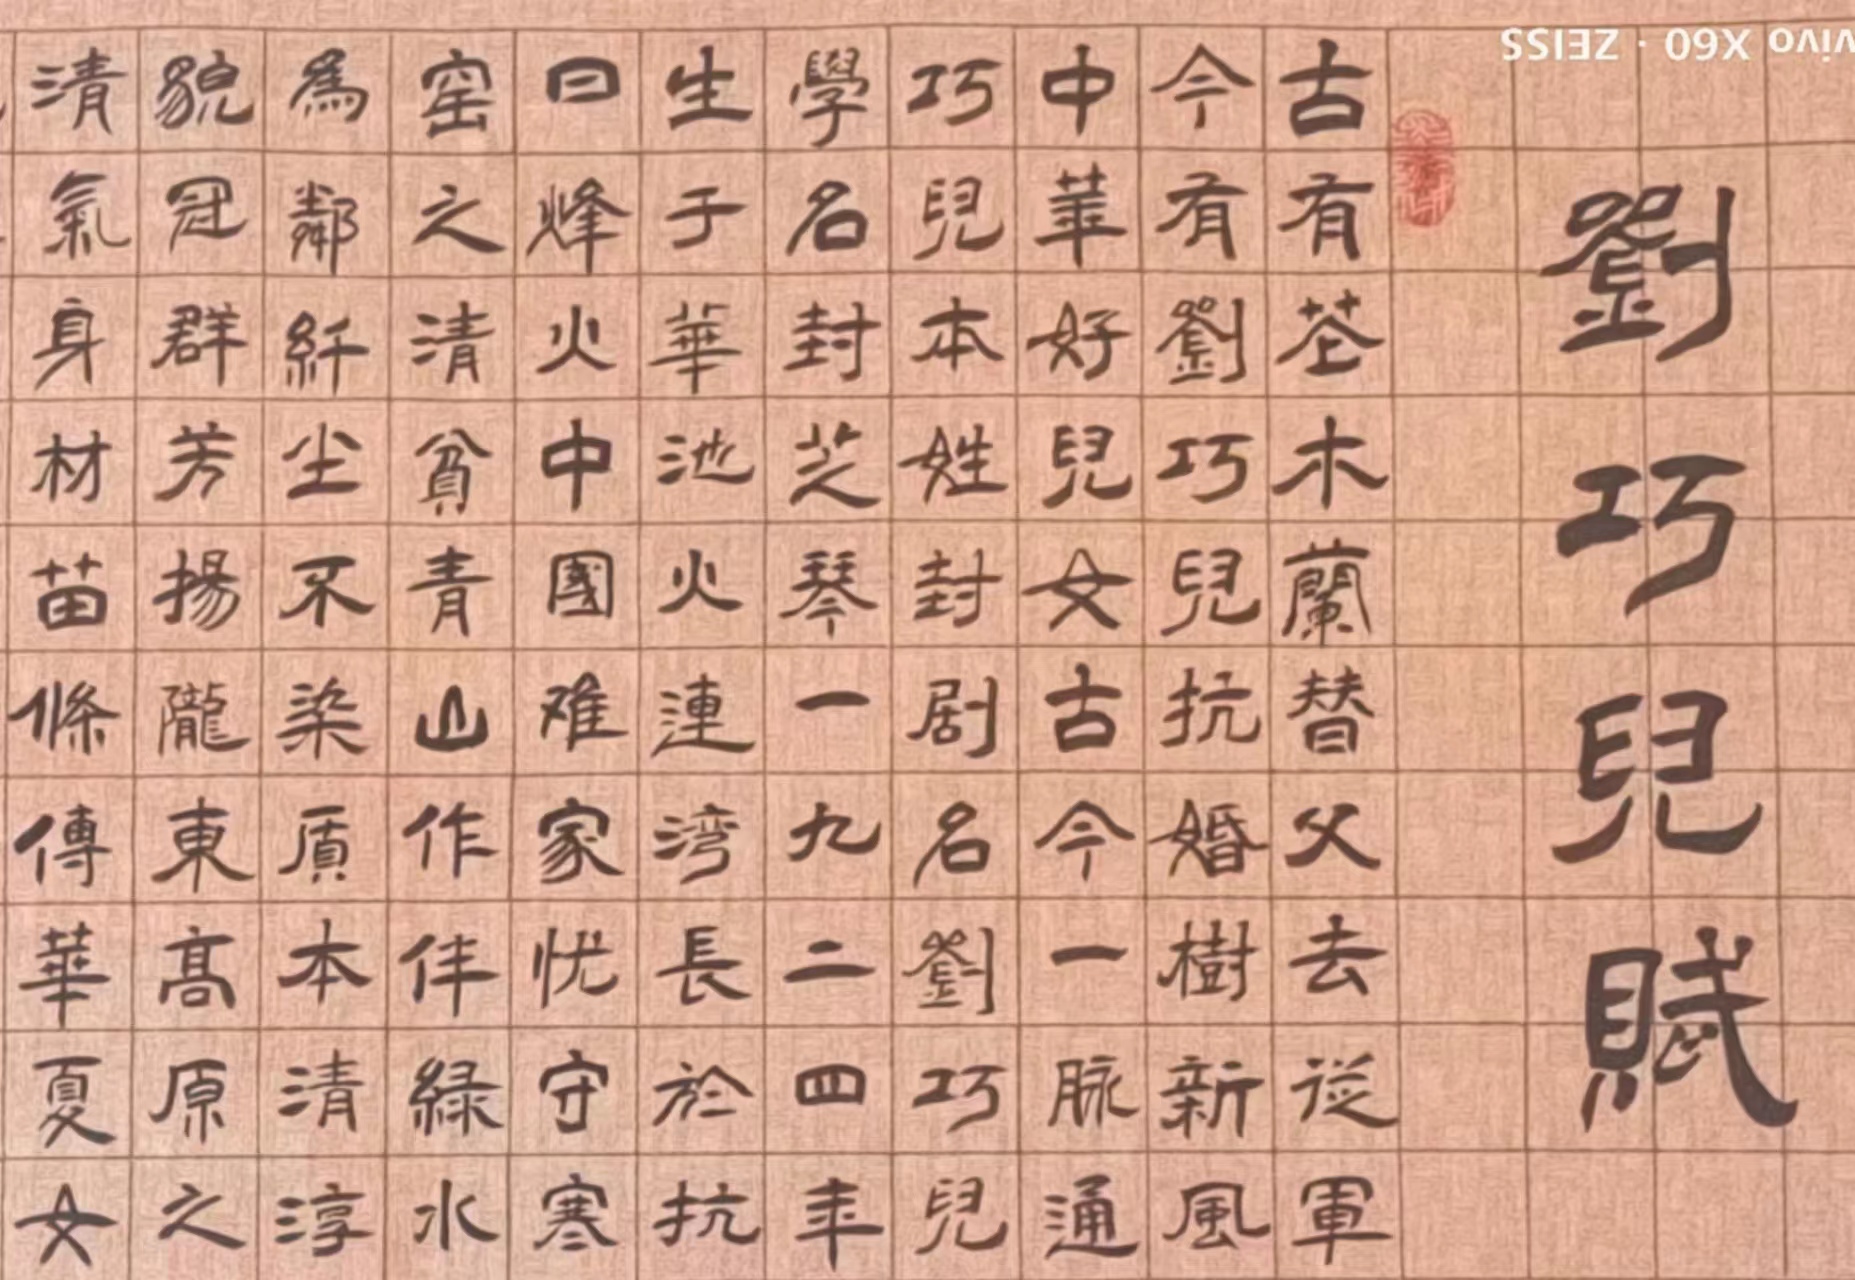 劉巧兒賦
古有花木蘭替父去從軍
今有劉巧兒抗婚樹新風
中華好兒女古今一脉通
巧兒本姓封剧名劉巧兒
學名封芝琴一九二四年
生于華池火連湾長於抗
日烽火中國难家忧守寒
窑之清貧青山作伴緑水
為鄰纤尘不染貭本清淳
貌冠群芳揚隴東高原之
清氣身材苗條傳華夏女
vivo X60 · ZEISS